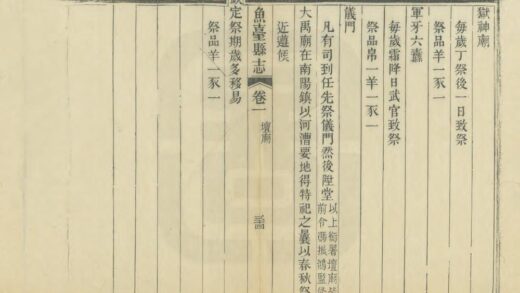 獄神廟
每歲丁祭後一日致祭
祭品羊一豕一
軍牙六纛
每歲霜降日武官致祭
祭品帛一羊一豕一
儀門
凡有司到任先祭儀門然後陞堂
以上衙署壇廟
前令馮振鴻監
大禹廟在南陽鎮以河漕要地得特祀之曩以春秋祭
近遵候
魚臺縣志 卷一 壇廟
欽定祭期歲多移易
祭品羊一豕一